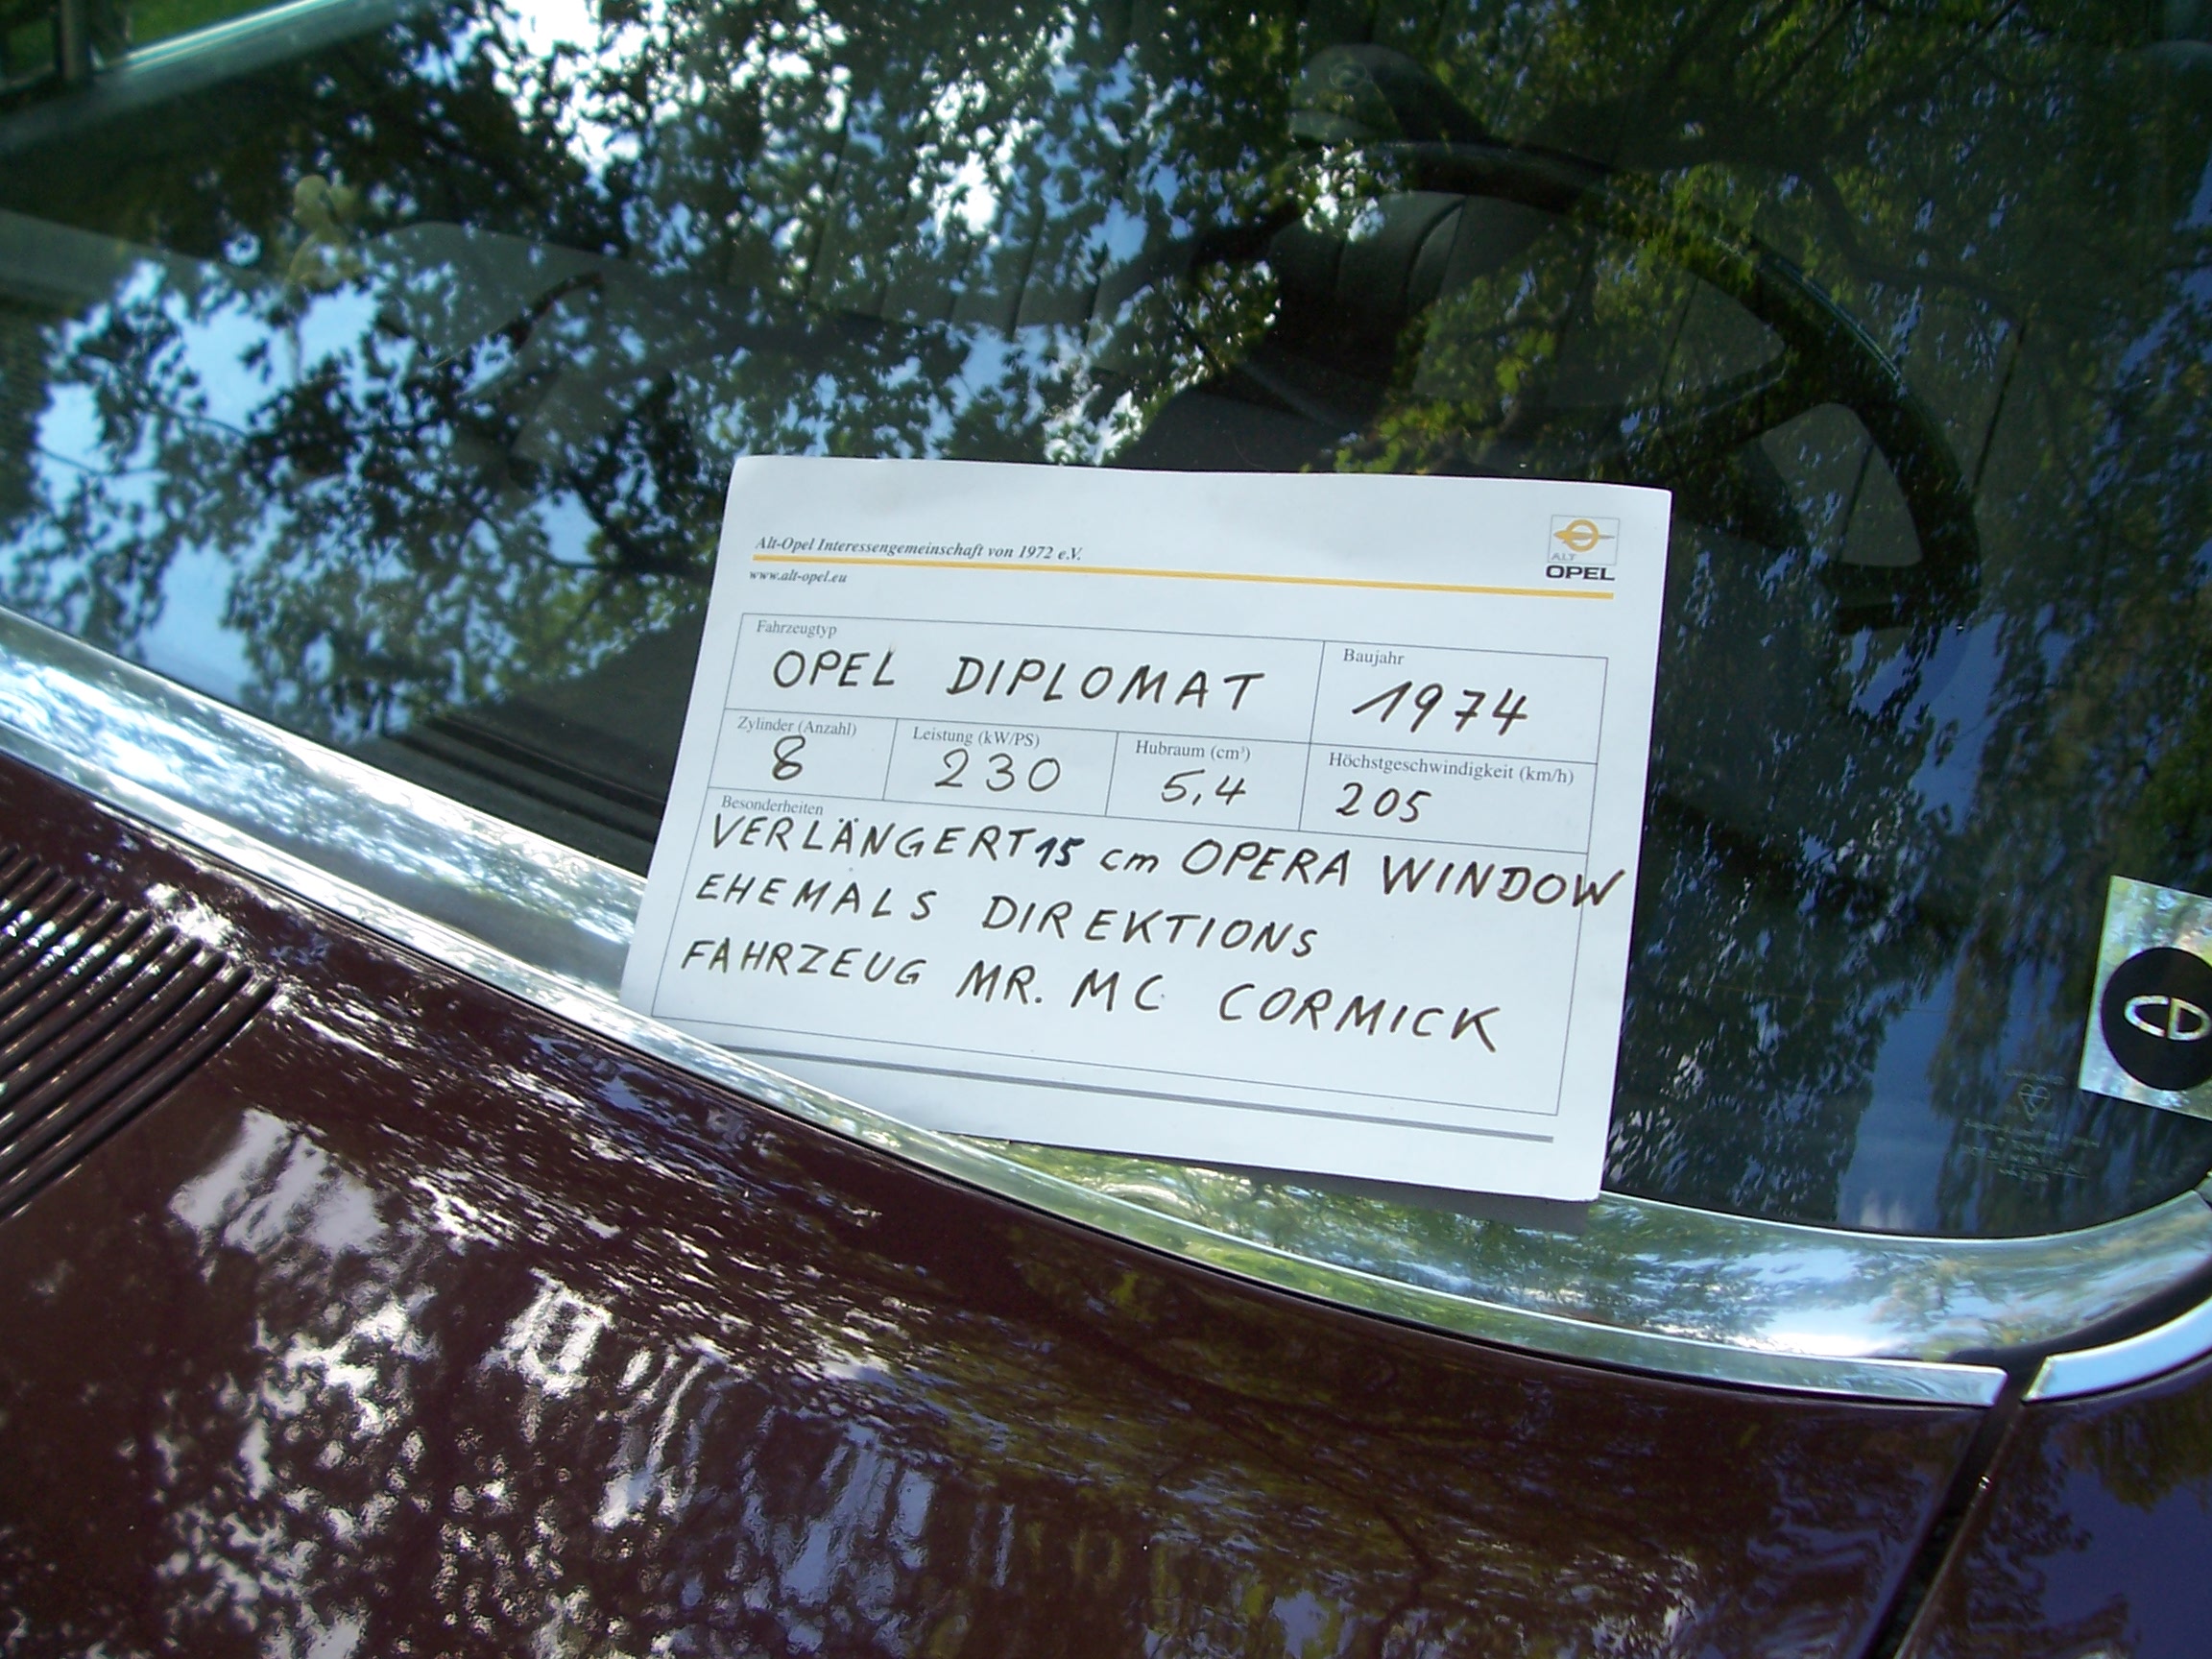 Alt-Opel Interessengemeinschaft von 1972 e.V.
www.alt-opel.eu
ALT
OPEL
Fahrzeugtyp
OPEL DIPLOMAT
Baujahr
1974
Zylinder (Anzahl)
8
Leistung (kW/PS)
230
Hubraum (cm³)
5,4
Höchstgeschwindigkeit (km/h)
205
Besonderheiten
VERLÄNGERT 15 cm OPERA WINDOW
EHEMALS DIREKTIONS
FAHRZEUG MR. MC CORMICK